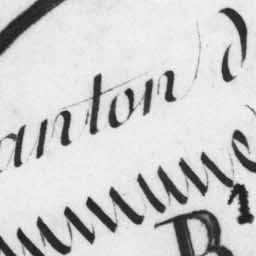 anton d
mmune
B 1